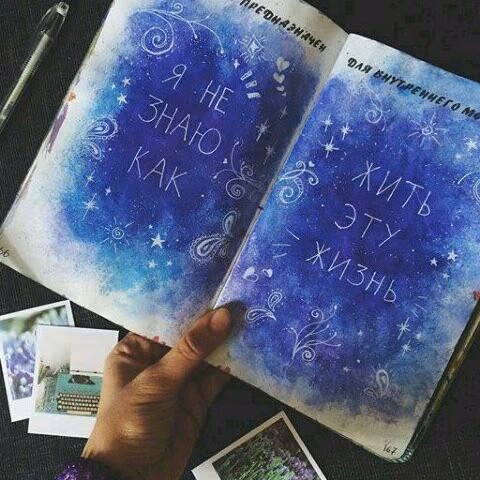 ПРЕДНАЗНАЧЕН
Я НЕ
ЗНАЮ
КАК
66
ДЛЯ ВНУТРЕННЕГО
ЖИТЬ
ЭТУ
ЖИЗНЬ
167